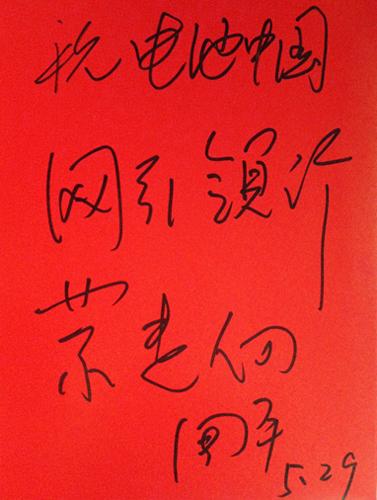 祝电池中国
网引領行
業走向
5.29